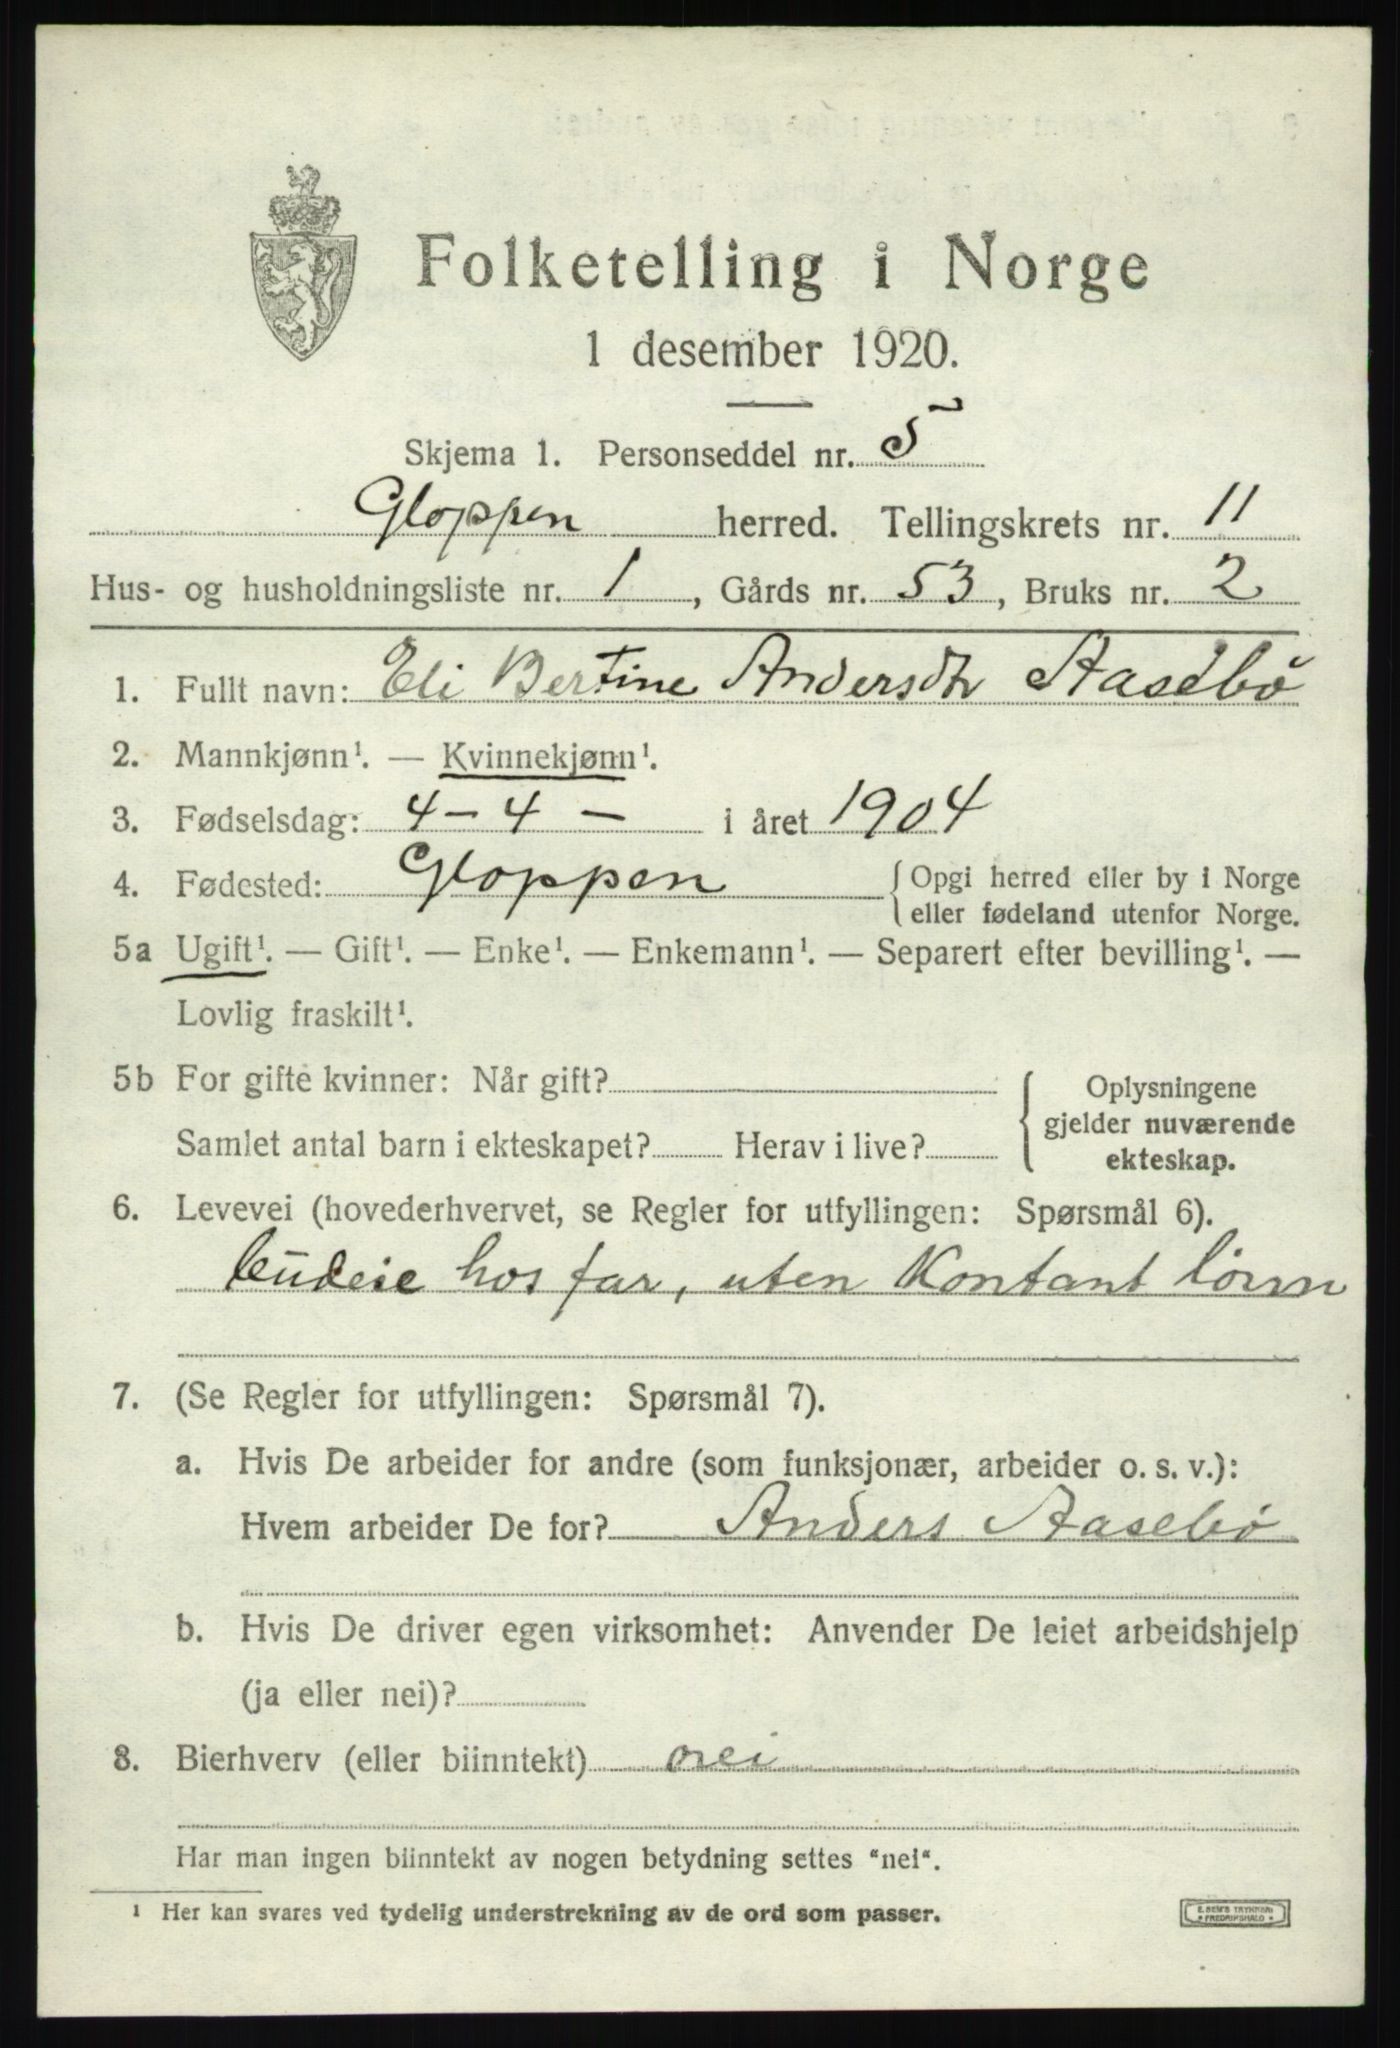 Folketelling i Norge
1 desember 1920.
Skjema 1. Personseddel nr. 5
Gloppen herred. Tellingskrets nr. 11
Hus- og husholdningsliste nr. 1, Gårds nr. 53, Bruks nr. 2
1. Fullt navn: Eli Bertine Andersdtr Aasebø
2. Mannkjønn¹. — Kvinnekjønn¹.
3. Fødselsdag: 4 - 4 - i året 1904
4. Fødested: Gloppen
Opgi herred eller by i Norge
eller fødeland utenfor Norge.
5a Ugift¹. — Gift¹. — Enke¹. — Enkemann¹. — Separert efter bevilling¹. —
Lovlig fraskilt¹.
5b For gifte kvinner: Når gift?
Samlet antal barn i ekteskapet? Herav i live?
Oplysningene
gjelder nuværende
ekteskap.
6. Levevei (hovederhvervet, se Regler for utfyllingen: Spørsmål 6).
budeie hos far, uten Kontant lønn
7. (Se Regler for utfyllingen: Spørsmål 7).
a. Hvis De arbeider for andre (som funksjonær, arbeider o. s. v.):
Hvem arbeider De for? Anders Aasebø
b. Hvis De driver egen virksomhet: Anvender De leiet arbeidshjelp
(ja eller nei)?
8. Bierhverv (eller biinntekt) nei
Har man ingen biinntekt av nogen betydning settes “nei“.
¹ Her kan svares ved tydelig understrekning av de ord som passer.
E. SEM'S TRYKKERI
• FREDRIKSHALD •